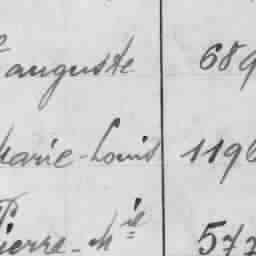 auguste 689
Marie-Louis 1196
Pierre-Mie 577